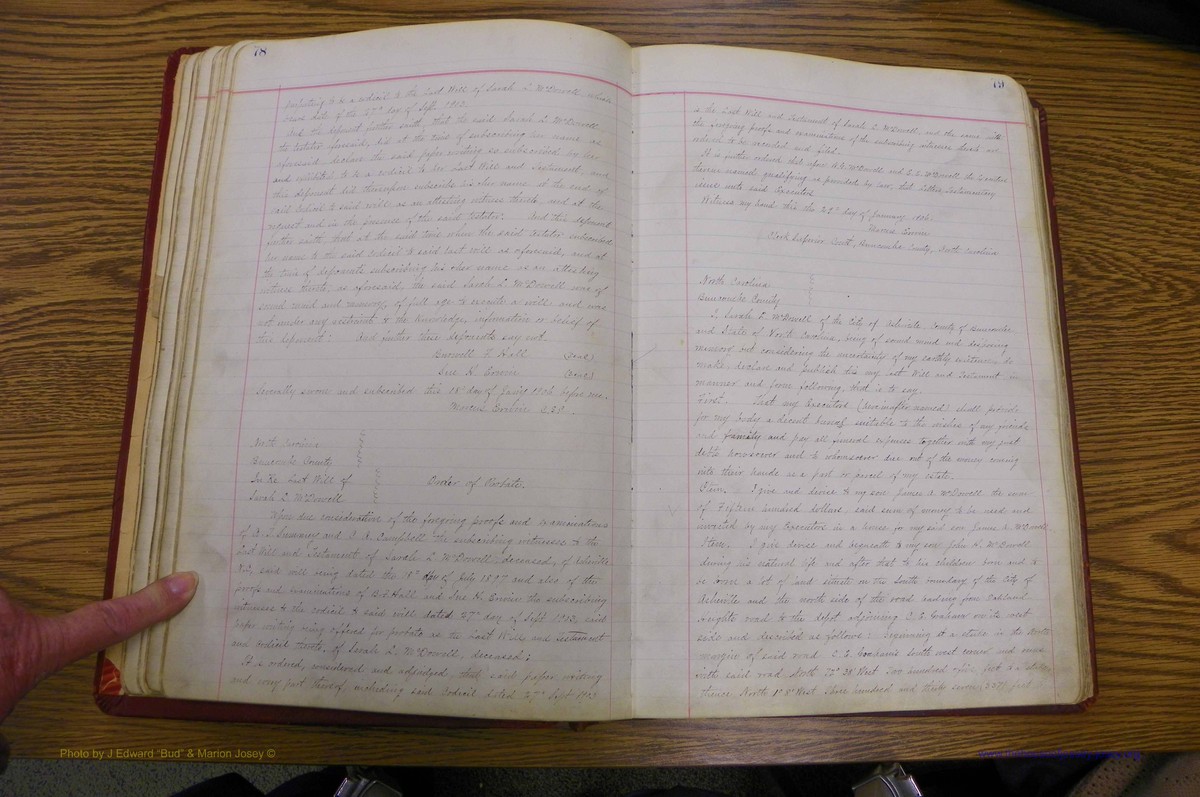 78
purporting to be a codicil to the Last Will of Sarah L. McDowell which
bears date of the 27th day of Sept. 1903.
And the deponent further saith, that the said Sarah L. McDowell
the testator aforesaid, did at the time of subscribing her name as
aforesaid declare the said paper writing so subscribed by her
and exhibited to be a codicil to her Last Will and testament, and
this deponent did thereupon subscribe his other name at the end of
said codicil to said will as an attesting witness thereto, and at the
request and in the presence of the said testator. And this deponent
further saith that at the said time when the said testator subscribed
her name to the said codicil to said last will as aforesaid, and at
the time of deponents subscribing his other name as an attesting
witness thereto, as aforesaid, the said Sarah L. McDowell was of
sound mind and memory, of full age to execute a will and was
not under any restraint to the knowledge, information or belief of
this deponent: And further these deponents say not.
Hall (Seal)
Sue H. Erwin (Seal)
Severally sworn and subscribed this 18 day of Jan'y 1906 before me.
Marcus Erwin C.S.C.
North Carolina
Buncombe County
In Re Last Will of Order of Probate.
Sarah L. McDowell
Upon due consideration of the foregoing proofs and examinations
of and Campbell the subscribing witnesses to the
Last Will and Testament of Sarah L. McDowell, deceased, of Asheville
N.C. said will being dated the day of July 1897 and also of the
proofs and examinations of Hall and Sue H. Erwin the subscribing
witnesses to the codicil to said will dated 27th day of Sept 1903, said
paper writing being offered for probate as the Last Will and Testament
and codicil thereto, of Sarah L. McDowell, deceased;
It is ordered, considered and adjudged that said paper writing
and every part thereof, including said codicil dated 27th Sept 1903
79
is the Last Will and Testament of Sarah L. McDowell, and the same with
the foregoing proofs and examinations of the subscribing witnesses thereto are
ordered to be recorded and filed.
It is further ordered that upon McDowell and McDowell the Executors
therein named, qualifying as provided by law, that Letters Testamentary
issue unto said Executors.
Witness my hand this the 29th day of January 1906.
Marcus Erwin
Clerk Superior Court, Buncombe County, North Carolina
North Carolina
Buncombe County
I, Sarah L. McDowell of the City of Asheville County of Buncombe
and State of North Carolina, being of sound mind and disposing
memory but considering the uncertainty of my earthly existence, do
make, declare and publish this my last Will and Testament in
manner and form following, that is to say,
First. That my Executors (hereinafter named) shall provide
for my body a decent burial suitable to the wishes of my friends
and family and pay all funeral expenses together with my just
debts howsoever and to whomsoever due out of the money coming
into their hands as a part or parcel of my estate.
Item. I give and devise to my son James A. McDowell the sum
of Fifteen hundred dollars, said sum of money to be used and
invested by my Executors in a house for my said son James A. McDowell.
Item. I give devise and bequeath to my son John McDowell
during his natural life and after that to his children born and to
be born a lot of land situate on the South boundary of the City of
Asheville and the north side of the road leading from Oakland
Heights road to the depot adjoining Graham on its west
side and described as follows: Beginning at a stake in the North
margin of said road Graham's South west corner and runs
with said road North West Two hundred feet to a stake
thence North West Three hundred and thirty seven (337) feet
Photo by J Edward "Bud" & Marion Josey ©